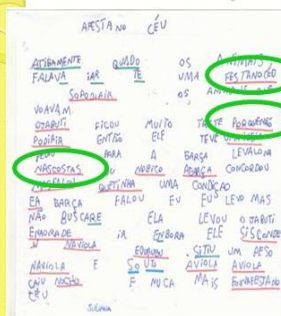 AFESTA NO CÉU
ATIBAMENTE QUADO OS ANIMAIS
FALAVA IAR TE UMA FESTANOCEO
SOPODIAIR OS
VOAVAM
OTABUTI FICOU MUITO TRISTE PORQUENÉS
PODIAIR ENTÃO ELE TEVE
PARA A BARSA LEVALONA
NASCOSTAS CONCORDOU
QUETINHA UMA CONDIÇAO
EA BARSA FALOU EU FU LEVO MAS
NÃO BUSCARE ELA LEVOU O TABUTI
ENAORADE IR ENBORA ELE SISCONDE
NAVIOLA SITIU UM PESO
NAVIOLA E SOUD AVIOLA AVIOLA
CAIU NOCHO E NUCA MAIS FOINAFESTANO
CÉU
JULIANA